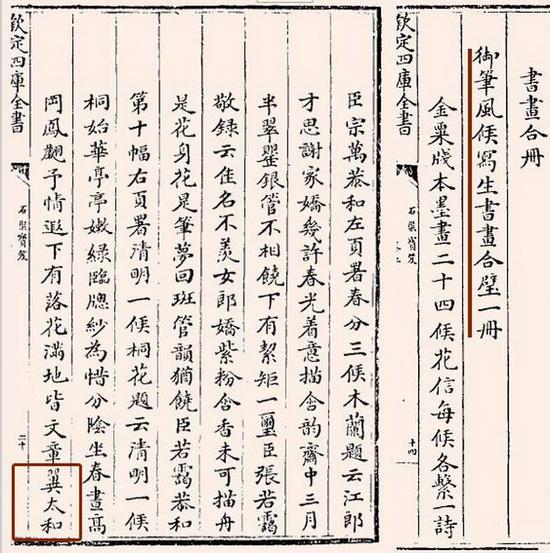 書畫合冊
御筆風候寫生書畫合璧一冊
金粟牋本墨畫二十四候花信每候各繫一詩
欽定四庫全書
石渠寶笈
十四
臣宗萬恭和左頁署春分三候木蘭題云江郎
才思謝家嬌幾許春光着意描含韵齋中三月
半翠罌銀管不相饒下有絜矩一璽臣張若靄
敬録云佳名不羨女郎嬌紫粉含香未可描舟
是花身花是筆夢回班管韻猶饒臣若靄恭和
第十幅右頁署清明一候桐花題云清明一候
桐始華亭亭嫩綠臨牕紗為惜分陰坐春晝高
岡鳳翽予情遐下有落花滿地皆文章翼太和
欽定四庫全書
石渠寶笈
二十